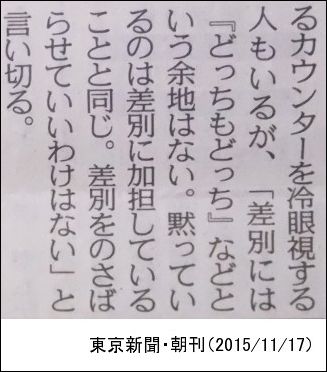 るカウンターを冷眼視する
人もいるが、「差別には
『どっちもどっち』などと
いう余地はない。黙ってい
るのは差別に加担している
ことと同じ。差別をのさば
らせていいわけはない」と
言い切る。
東京新聞・朝刊（2015/11/17）